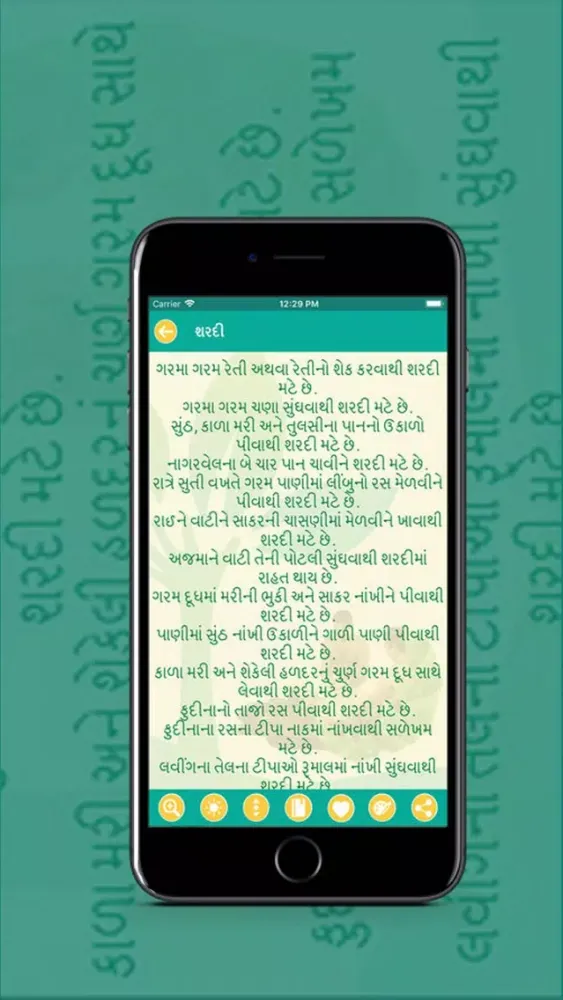 Carrier 12:29 PM
શરદી
ગરમા ગરમ રેતી અથવા રેતીનો શેક કરવાથી શરદી
મટે છે.
ગરમા ગરમ ચણા સુંઘવાથી શરદી મટે છે.
સુંઠ, કાળા મરી અને તુલસીના પાનનો ઉકાળો
પીવાથી શરદી મટે છે.
નાગરવેલના બે ચાર પાન ચાવીને શરદી મટે છે.
રાત્રે સુતી વખતે ગરમ પાણીમાં લીંબુનો રસ મેળવીને
પીવાથી શરદી મટે છે.
રાઈને વાટીને સાકરની ચાસણીમાં મેળવીને ખાવાથી
શરદી મટે છે.
અજમાને વાટી તેની પોટલી સુંઘવાથી શરદીમાં
રાહત થાય છે.
ગરમ દૂધમાં મરીની ભુકી અને સાકર નાંખીને પીવાથી
શરદી મટે છે.
પાણીમાં સુંઠ નાંખી ઉકાળીને ગાળી પાણી પીવાથી
શરદી મટે છે.
કાળા મરી અને શેકેલી હળદરનું ચુર્ણ ગરમ દૂધ સાથે
લેવાથી શરદી મટે છે.
ફુદીનાનો તાજો રસ પીવાથી શરદી મટે છે.
ફુદીનાના રસના ટીપા નાકમાં નાંખવાથી સળેખમ
મટે છે.
લવીંગના તેલના ટીપાઓ રૂમાલમાં નાંખી સુંઘવાથી
શરદી મટે છે
શરદી મટે છે.
કાળા મરી અને શેકેલી હળદરનું ચુર્ણ ગરમ દૂધ સાથે
મટે છે.
સળેખમ
લવીંગના તેલના ટીપાઓ રૂમાલમાં નાંખી સુંઘવાથી
શરદી મટે છે